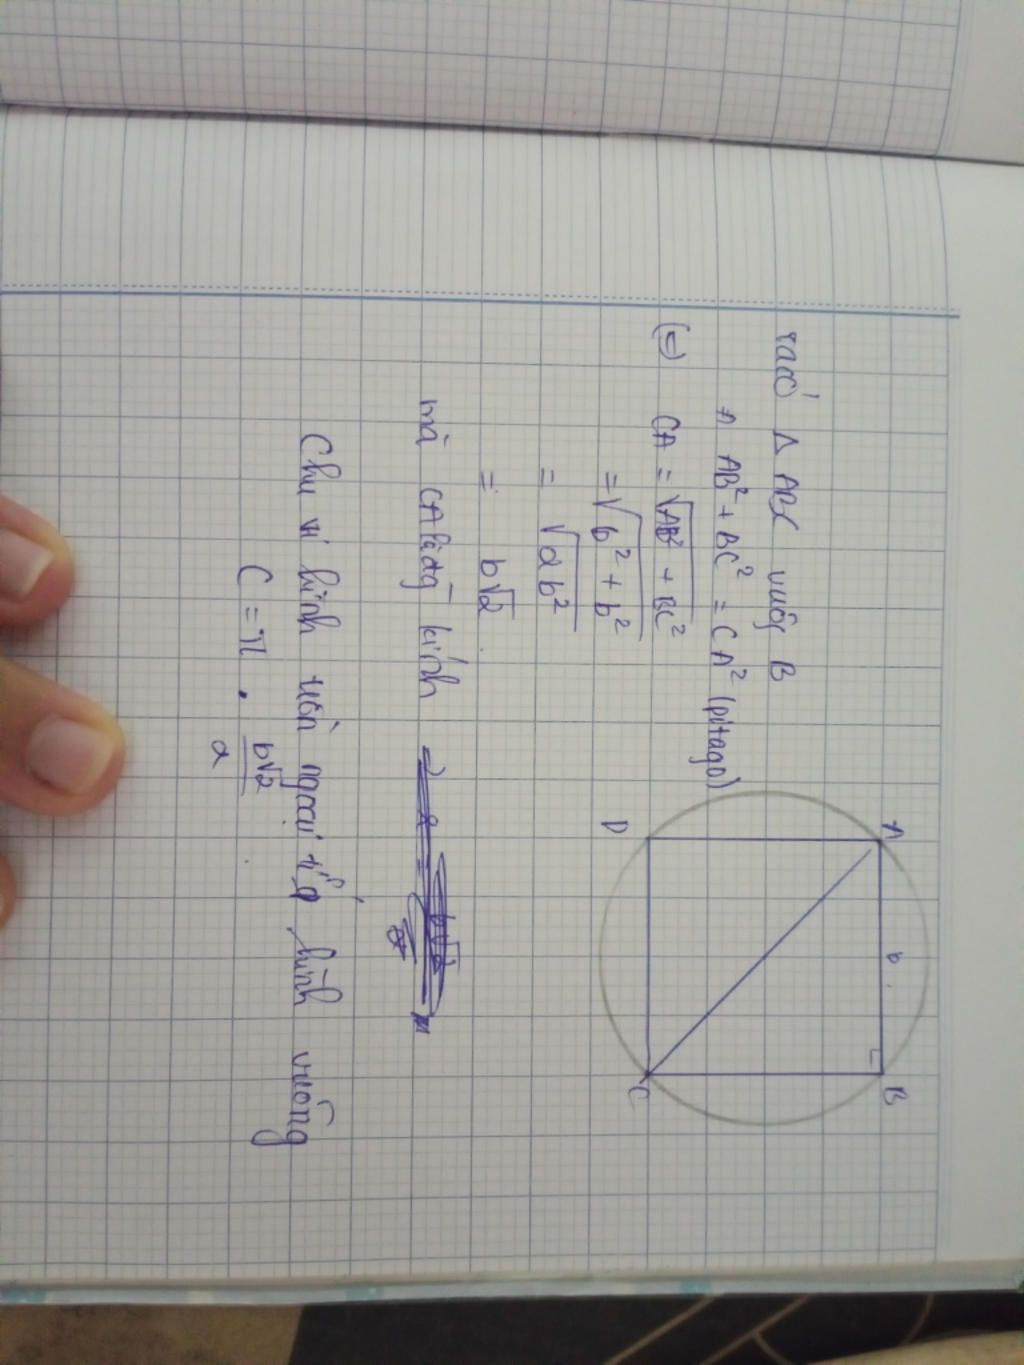 A b B
D C
ta có Δ ABC vuông B
AB² + BC² = CA² (pitago)
(=) CA = √AB² + BC²
= √b² + b²
= √2b²
= b√2
mà CA là đg kính
Chu vi hình tròn ngoại tiếp hình vuông
C = π . b√2/2